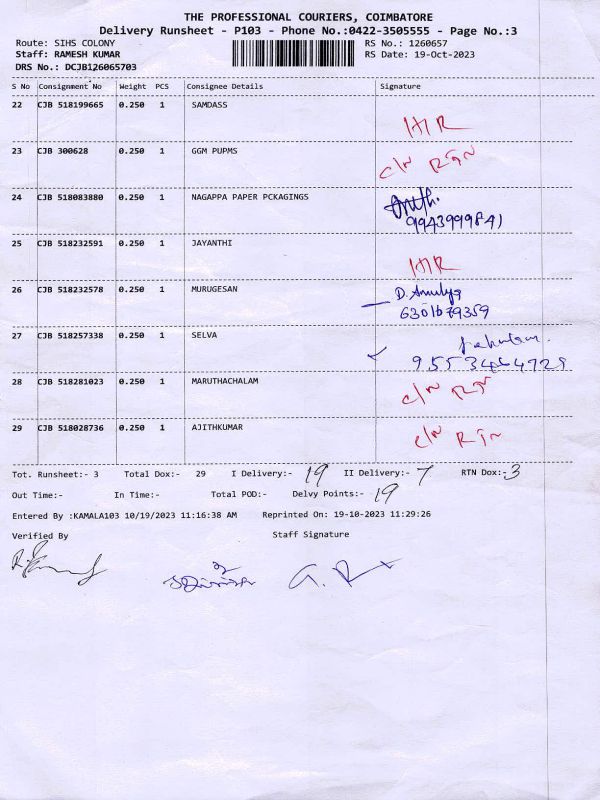 THE PROFESSIONAL COURIERS, COIMBATORE
Delivery Runsheet - P103 - Phone No.:0422-3505555 - Page No.:3
Route: SIHS COLONY RS No.: 1260657
Staff: RAMESH KUMAR RS Date: 19-Oct-2023
DRS No.: DCJB126065703
S No Consignment No Weight PCS Consignee Details Signature
22 CJB 518199665 0.250 1 SAMDASS H/R
23 CJB 300628 0.250 1 GGM PUPMS C/N RTN
24 CJB 518083880 0.250 1 NAGAPPA PAPER PCKAGINGS
9943999841
25 CJB 518232591 0.250 1 JAYANTHI H/R
26 CJB 518232578 0.250 1 MURUGESAN D. Amulya
6301679359
27 CJB 518257338 0.250 1 SELVA
9553464729
28 CJB 518281023 0.250 1 MARUTHACHALAM C/N RTN
29 CJB 518028736 0.250 1 AJITHKUMAR C/N RTN
Tot. Runsheet:- 3 Total Dox:- 29 I Delivery:- 19 II Delivery:- 7 RTN Dox:- 3
Out Time:- In Time:- Total POD:- Delvy Points:- 19
Entered By :KAMALA103 10/19/2023 11:16:38 AM Reprinted On: 19-10-2023 11:29:26
Verified By Staff Signature